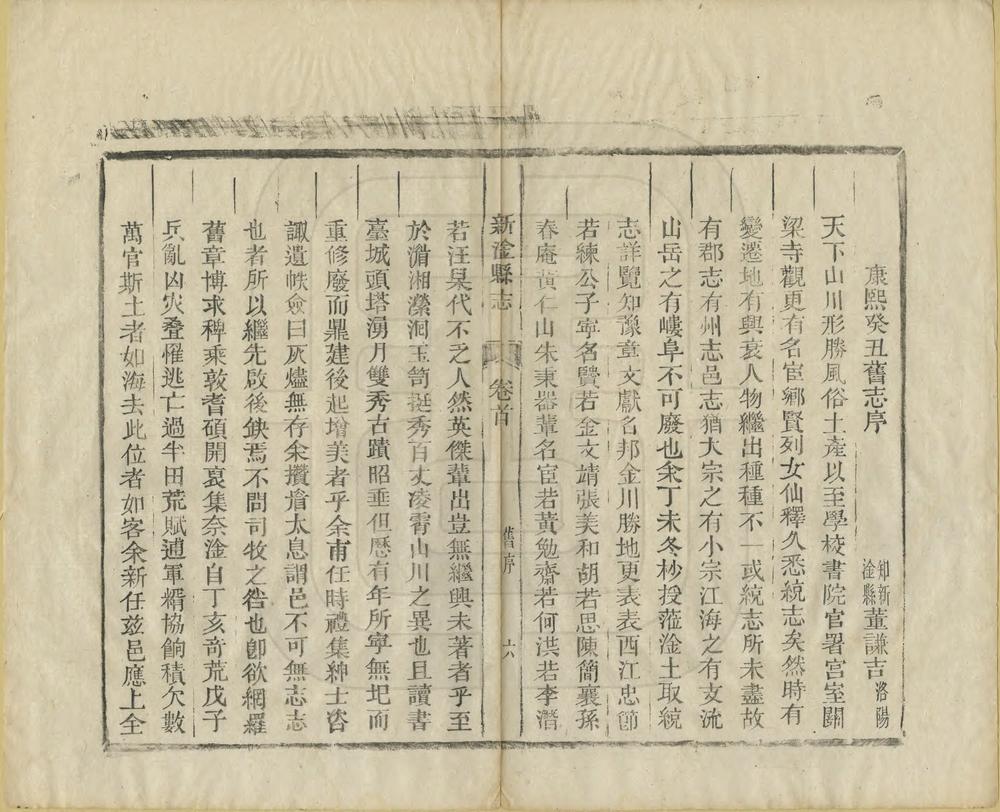 康熙癸丑舊志序
知新淦縣董謙吉洛陽
天下山川形勝風俗土產以至學校書院官署宮室關
梁寺觀更有名宦鄉賢列女仙釋久悉統志矣然時有
變遷地有興衰人物繼出種種不一或統志所未盡故
有郡志有州志邑志猶大宗之有小宗江海之有支流
山岳之有嶁阜不可廢也余丁未冬杪授蒞淦土取統
志詳覽知豫章文獻名邦金川勝地更表表西江忠節
若練公子寧名賢若金文靖張美和胡若思陳簡襄孫
春庵黃仁山朱秉器輩名宦若黃勉齋若何洪若李潛
新淦縣志
卷首
舊序
六
若汪杲代不乏人然英傑輩出豈無繼興未著者乎至
於湄湘瀠洄玉笥挺秀百丈凌霄山川之異也且讀書
臺城頭塔湧月雙秀古蹟昭垂但歷有年所寧無圮而
重修廢而鼎建後起增美者乎余甫任時禮集紳士咨
諏遺帙僉曰灰燼無存余攢眉太息謂邑不可無志志
也者所以繼先啟後缺焉不問司牧之咎也卽欲網羅
舊章博求稗乘敦耆碩開裒集奈淦自丁亥奇荒戊子
兵亂凶災叠罹逃亡過半田荒賦逋軍糈協餉積欠數
萬官斯土者如海去此位者如客余新任兹邑應上全